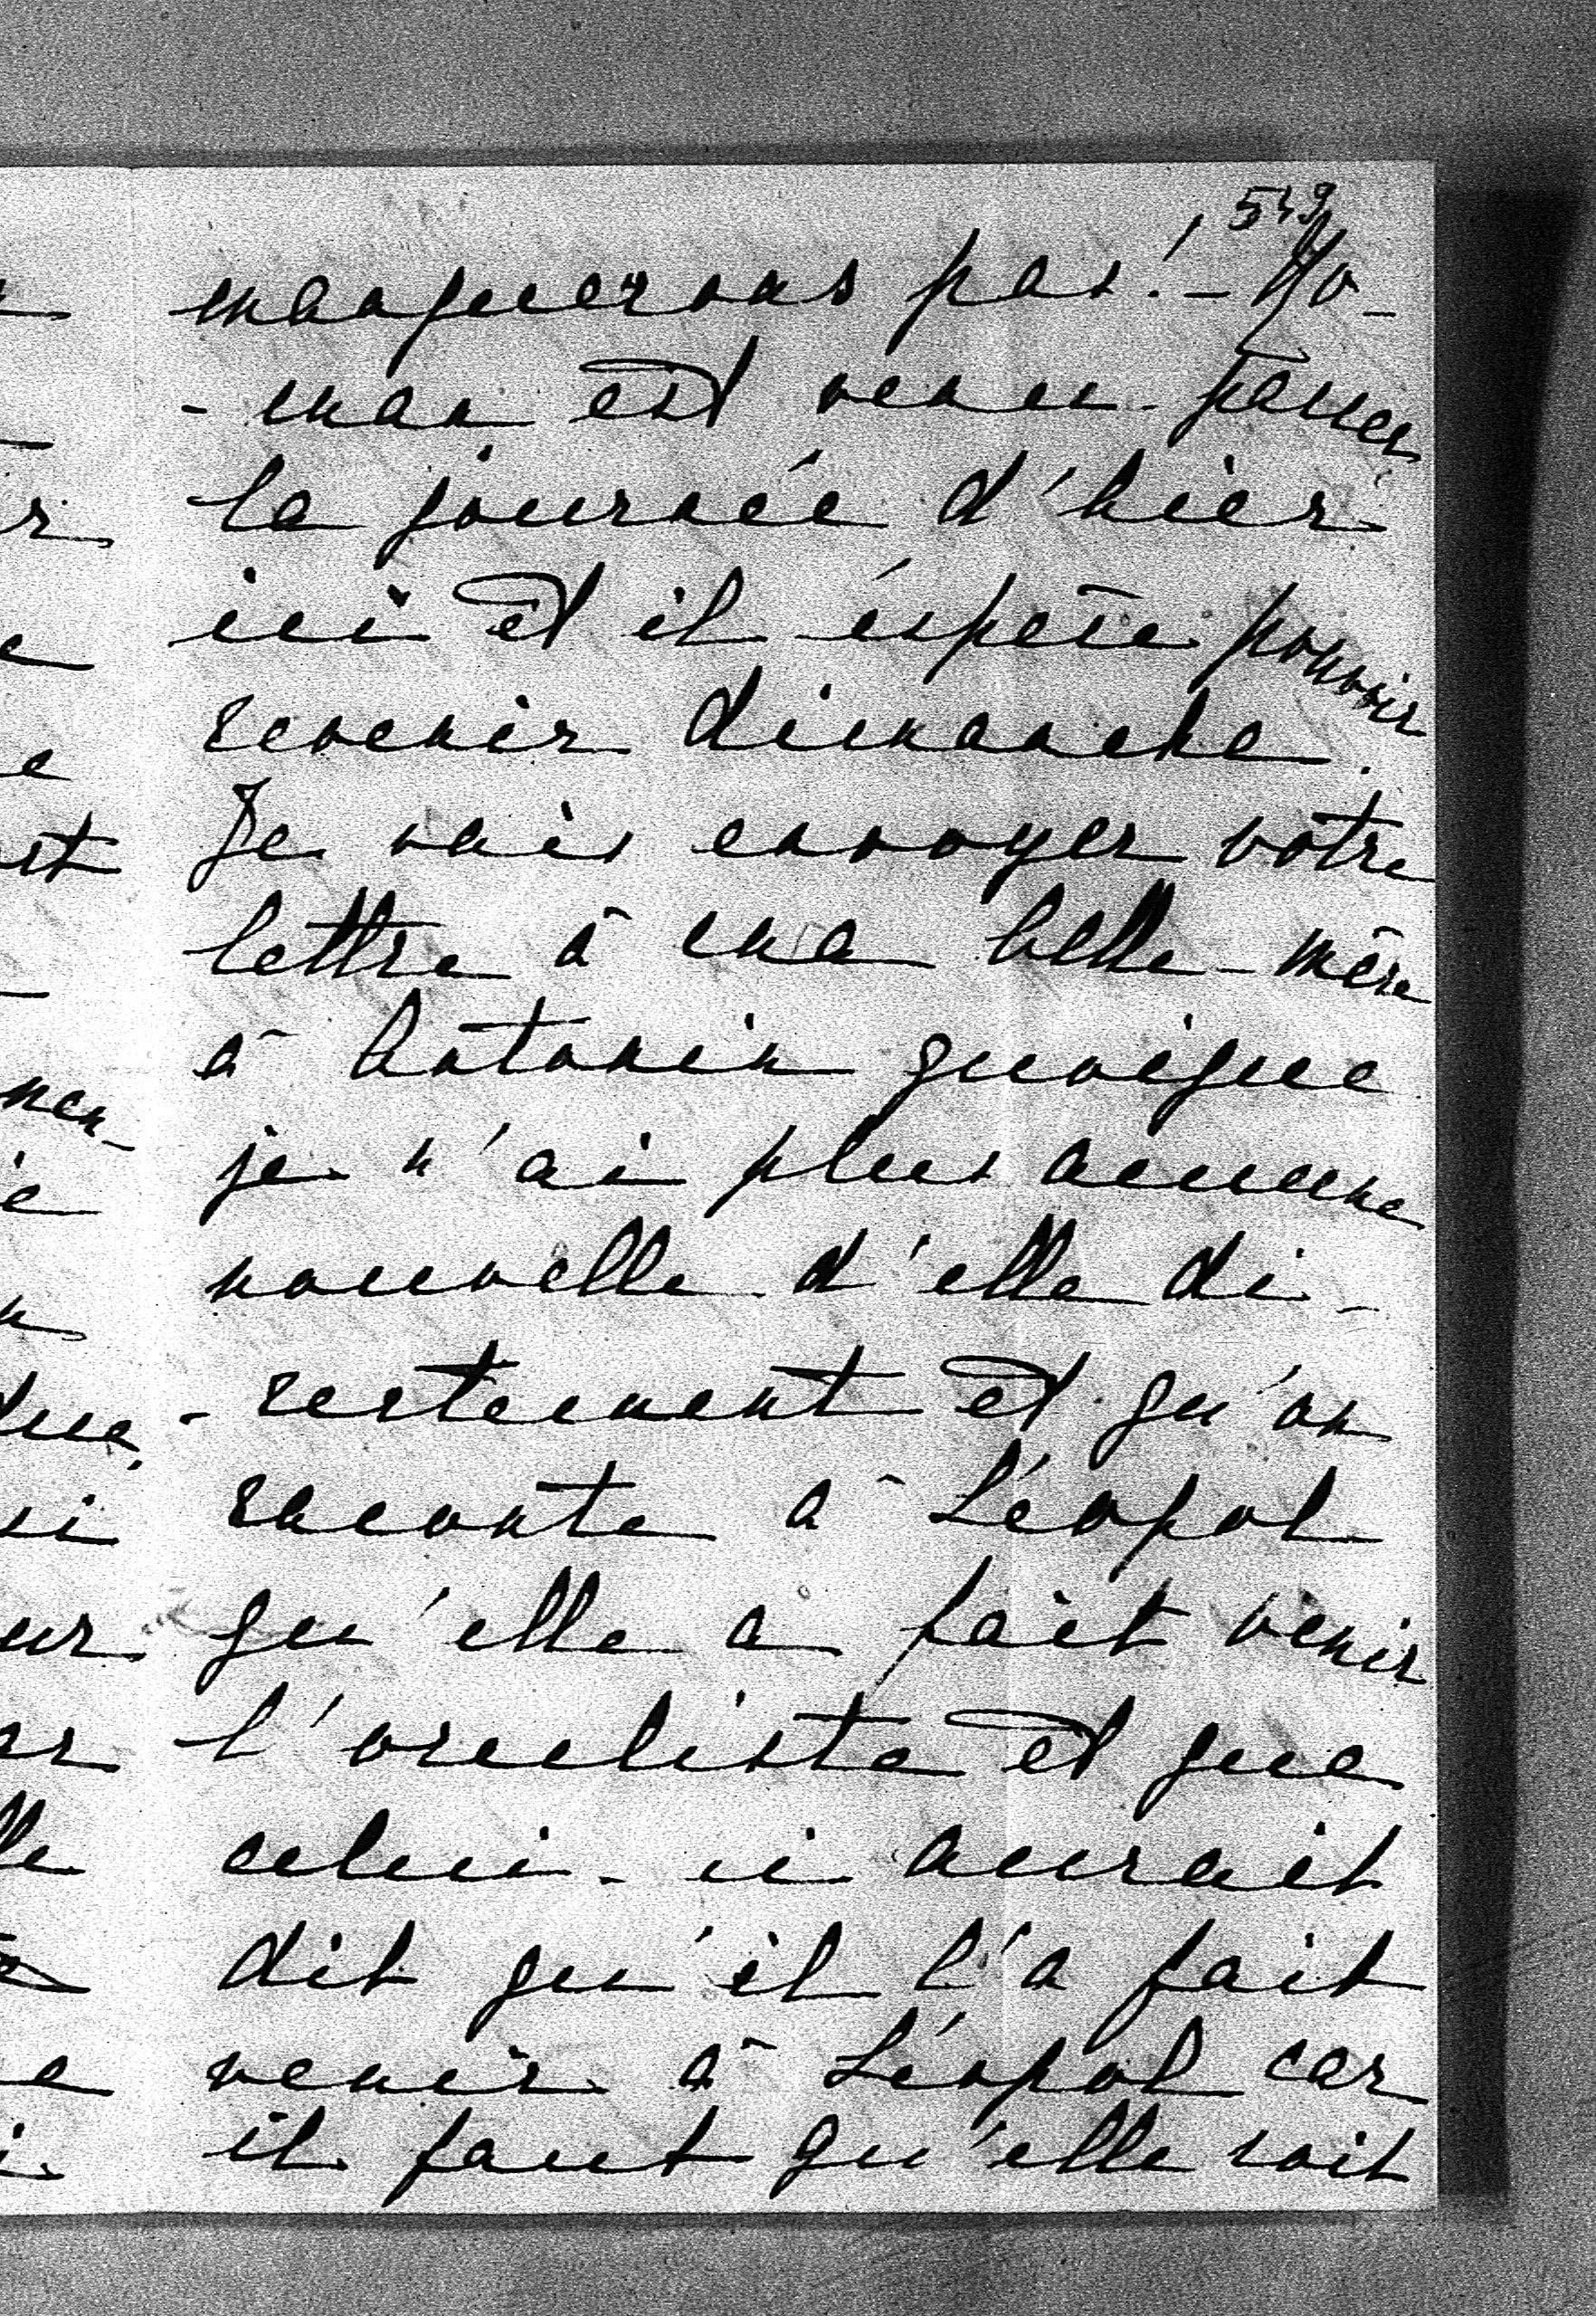 manquerons pas! - Ro-
- man est venu passer
la journée d'hier
ici et il éspère pouvoir
revenir dimanche.
Je vais envoyer votre
lettre à ma belle-mère
à Antonin quoique
je n'ai plus aucune
nouvelle d'elle di-
- rectement et qu'on
raconte à Léopol
qu'elle a fait venir
l'oculiste et que
celui-ci aurait
dit qu'il l'a fait
venir à Léopol car
il faut qu'elle soit